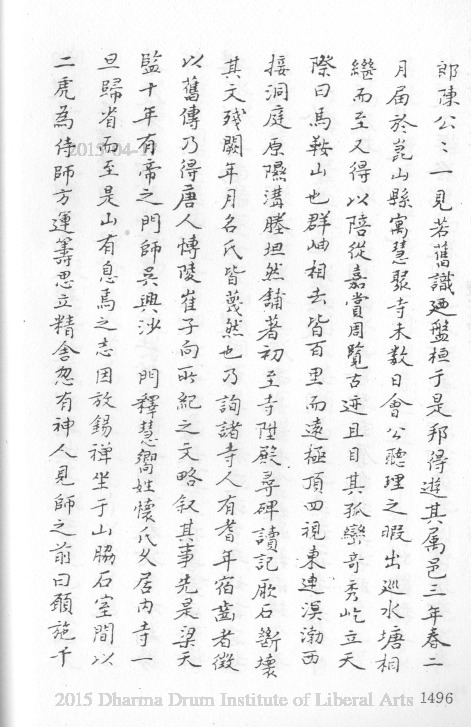 郎陳公：一見若舊識廼盤桓于是邦得遊其属邑三年春二
月届於崑山縣寓慧聚寺未数日會公聽理之暇出巡水塘相
繼而至又得以陪從嘉賞周覧古迹且目其孤巒竒秀屹立天
際曰馬鞍山也群岫相去皆百里而遠極頂四視東連溟渤西
接洞庭原隰溝塍坦然舖著初至寺陞殿尋碑讀記厥石斷壞
其文殘闕年月名氏皆蔑然也乃詢諸寺人有耆年宿齒者徴
以舊傳乃得唐人博陵崔子向所紀之文略叙其事先是梁天
監十年有帝之門師吳興沙　門釋慧嚮姓懷氏久居内寺一
旦歸省而至是山有息焉之志因放錫禅坐于山脇石室間以
二虎為侍師方運籌思立精舎忽有神人見師之前曰願施千
2015 Dharma Drum Institute of Liberal Arts 1496